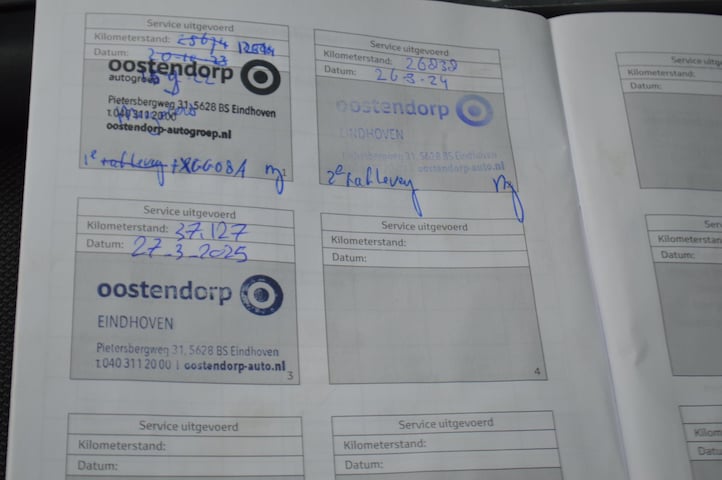 Service uitgevoerd
Kilometerstand: 25674
Datum: 20-12-23
oostendorp
autogroep
Pietersbergweg 31, 5628 BS Eindhoven
t.040 311 20 00
oostendorp-autogroep.nl
1e + aflevery + XGG08A
Service uitgevoerd
Kilometerstand: 26838
Datum: 26-3-24
oostendorp
EINDHOVEN
Pietersbergweg 31, 5628 BS Eindhoven
oostendorp-auto.nl
2e + aflevery
Service uitgevoerd
Kilometerstand: 37.127
Datum: 27-3-2025
oostendorp
EINDHOVEN
Pietersbergweg 31, 5628 BS Eindhoven
t.040 311 20 00 | oostendorp-auto.nl
3
Service uitgevoerd
Kilometerstand:
Datum:
4
Service uitgevoerd
Kilometerstand:
Datum:
Service uitgevoerd
Kilometerstand:
Datum:
Kilometerstand:
Datum:
Datum: